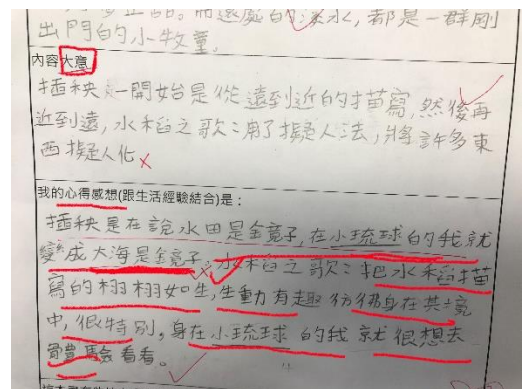 出門的小牧童。
內容大意
插秧:一開始是從遠到近的描寫,然後再
近到遠,水稻之歌:用了擬人法,將許多東
西擬人化
我的心得感想(跟生活經驗結合)是:
插秧是在說水田是鏡子,在小琉球的我就
變成大海是鏡子。水稻之歌:把水稻描
寫的栩栩如生,生動有趣彷彿身在其境
中,很特別,身在小琉球的我就很想去
體驗看看。